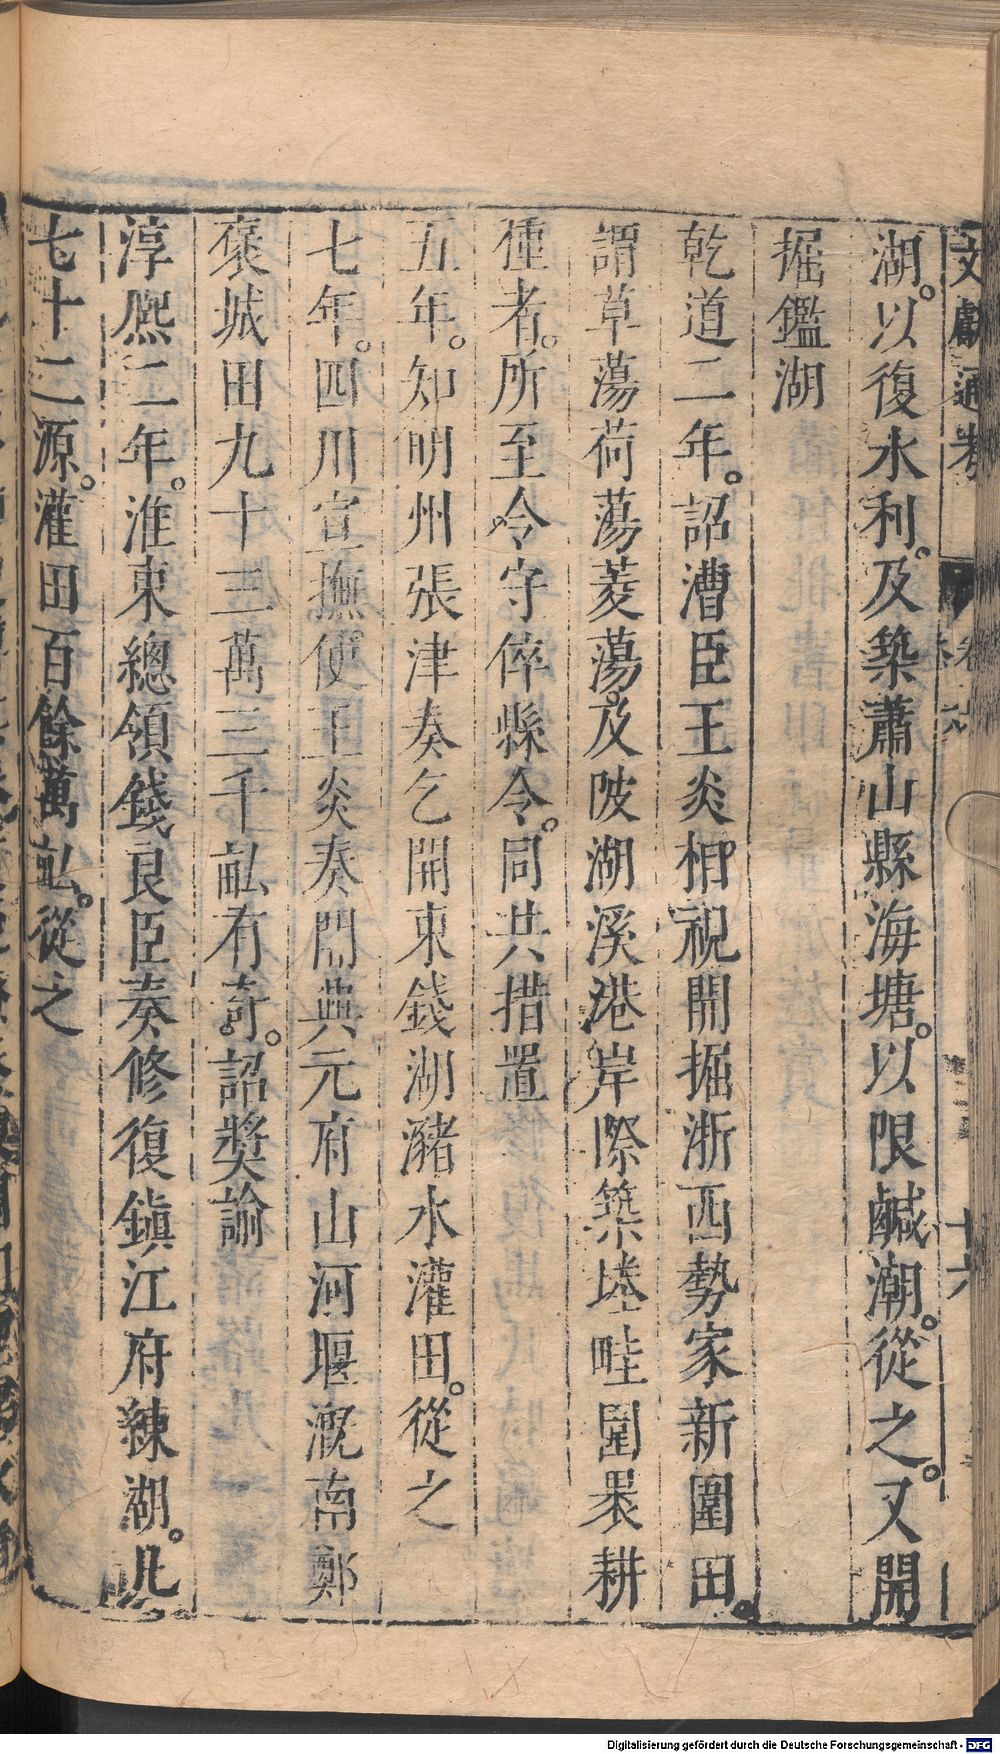 文獻通考 卷六 十六
湖。以復水利。及築蕭山縣海塘。以限鹹潮。從之。又開
掘鑑湖
乾道二年。詔漕臣王炎相視開掘浙西勢家新圍田。
謂草蕩荷蕩菱蕩。及陂湖溪港岸際築塍畦圍裹耕
種者。所至令守倅縣令。同共措置
五年。知明州張津奏乞開東錢湖瀦水灌田。從之
七年。四川宣撫使王炎奏開興元府山河堰溉南鄭
褒城田九十三萬三千畝有奇。詔獎諭
淳熈二年。淮東總領錢良臣奏修復鎭江府練湖。凡
七十二源。灌田百餘萬畝。從之
Digitalisierung gefördert durch die Deutsche Forschungsgemeinschaft - DFG